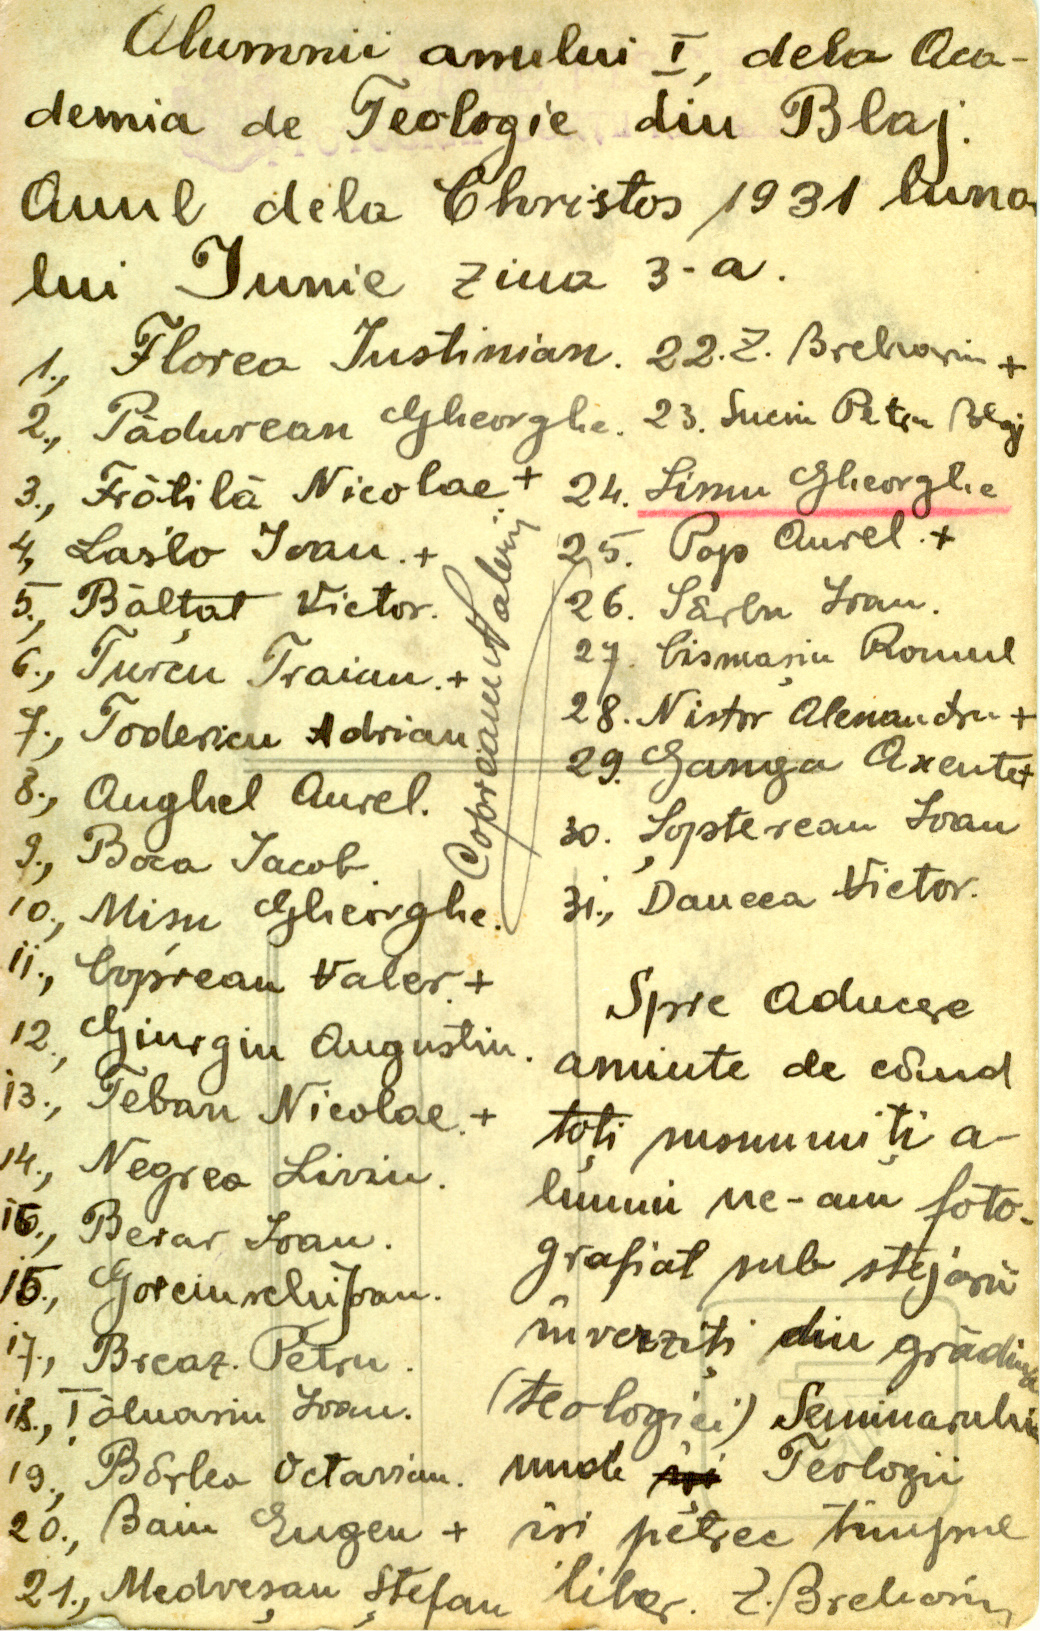 Alumnii anului I, dela Aca-
demia de Teologie din Blaj.
Anul dela Christos 1931 luna
lui Iunie ziua 3-a.
1., Florea Iustinian.
2., Pădurean Gheorghe.
3., Frătilă Nicolae +
4, Laslo Ioan. +
5., Bălțat Victor.
6., Turcu Traian. +
7., Todericu Adrian
8., Anghel Aurel.
9., Boca Iacob.
10., Mișu Gheorghe.
11., Coprean Valer. +
12., Giurgiu Augustin.
13., Teban Nicolae. +
14., Negrea Liviu.
15., Berar Ioan.
16., Ioan.
17., Breaz. Petru.
18., Țăluariu Ioan.
19., Bârlea Octavian.
20., Bain Eugen +
21., Medveșan Ștefan
Coprean Valeriu
22. Z. Brehariu +
23. Suciu Petru Blaj
24. Simu Gheorghe
25. Pop Aurel. +
26. Sârbu Ioan.
27. Cismașiu Romul
28. Nistor Alexandru +
29. Ganga Axente +
30. Șopterean Ioan
31., Dancea Victor.
Spre aducere
aminte de când
toți susnumiți a-
lumni ne-am foto-
grafiat sub stejarii
înverziți din grădina
(teologiei) Seminarului
unde Teologii
își petrec timpul
liber. Z. Brehariu